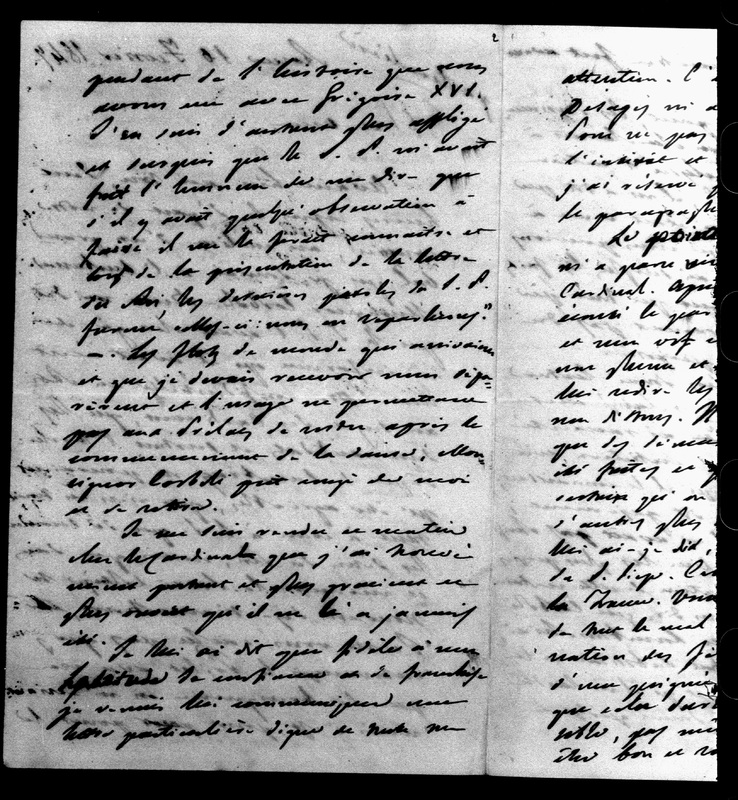 2
pendant de l'histoire que nous
avons eue avec Grégoire XVI.
J'en suis d'autant plus affligé
et surpris que le S. P. m'avait
fait l'honneur de me dire que
s'il y avait quelque observation à
faire il me le ferait connaître et
lors de la présentation de la lettre
du Roi, les dernières paroles du S. P.
furent celles-ci: nous en reparlerons."
— Les flots de monde qui arrivaient
et que je devais recevoir nous sépa-
rèrent et l'usage ne permettant
pas aux Prélats de rester après le
commencement de la danse, Mon-
signor Corboli prit congé de moi
et se retira.
Je me suis rendu ce matin
chez le Cardinal que j'ai trouvé
mieux portant et plus gracieux et
plus ouvert qu'il ne l'a jamais
été.
Je lui ai dit que fidèle à mes
habitudes de confiance et de franchise
je venais lui communiquer une
lettre particulière digne de toute son
attention. C'
Desages m'a
Pour ne pas
l'intérêt et
j'ai réservé
le paragraphe
Le
m'a paru
Cardinal. Après
écouté le
et un vif
une plume et
lui redire les
que des
été faites
certains qui
d'autres plus
lui ai-je dit,
du S. Siège.
la France. Vous
de tout le mal
nation des
d'une poignée
que cela
pas
être bon et